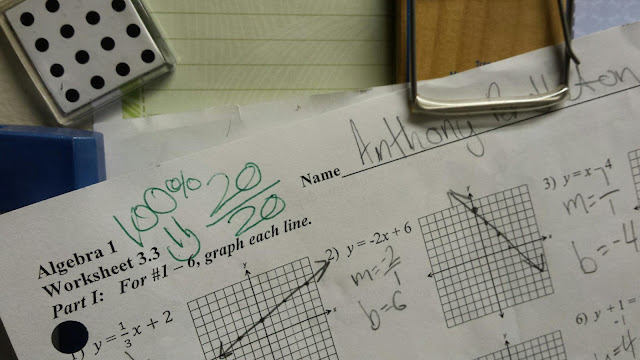 Name Anthony
100% 20/20
Algebra 1
Worksheet 3.3
Part I: For #1 – 6, graph each line.
y = 1/3 x + 2
2) y = -2x + 6
m = 2/1
b = 6
3) y = x - 4
m = 1/1
b = -4
6) y + 1 =